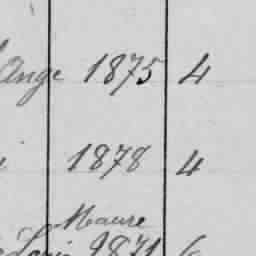 Ange 1875 4
i 1878 4
Maure
Louis 1871 6